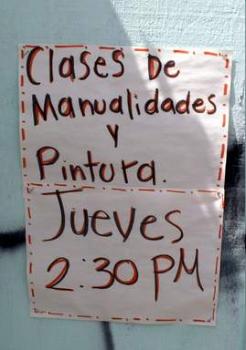 Clases De
Manualidades
y
Pintura.
Jueves
2:30 PM